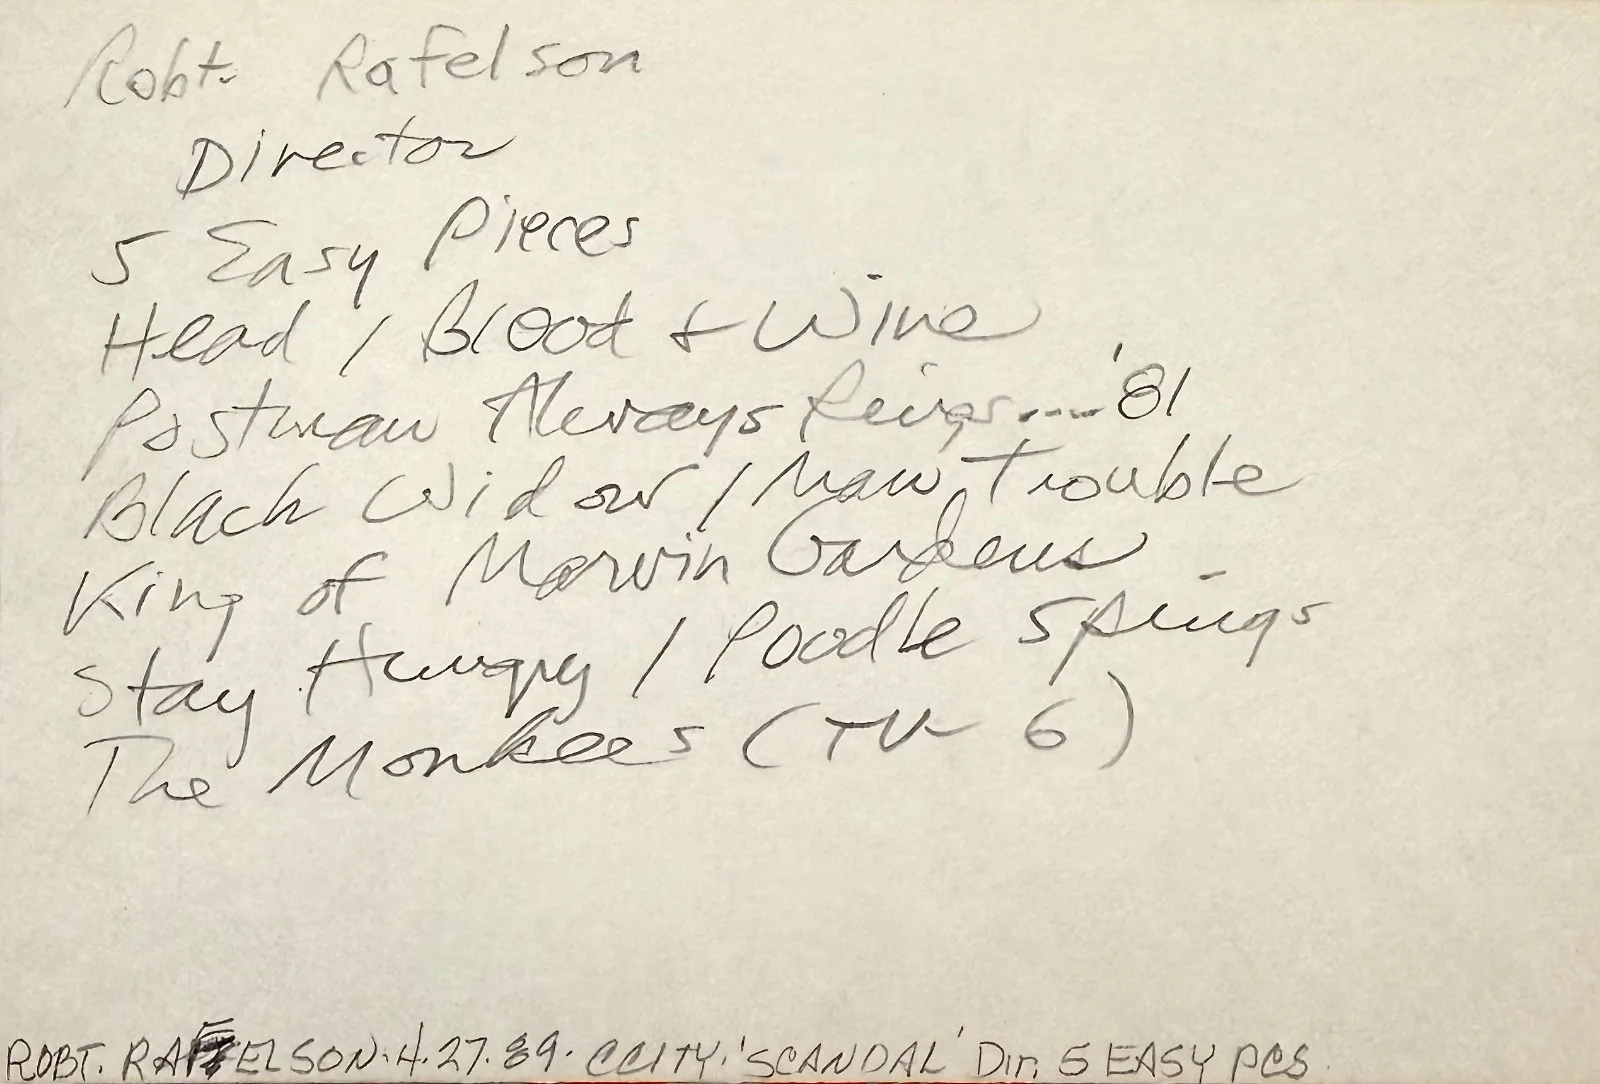 Robt. Rafelson
Director
5 Easy Pieces
Head / Blood + Wine
Postman Always Rings....'81
Black Widow / Man Trouble
King of Marvin Gardens
Stay Hungry / Poodle Springs
The Monkees (TV 6)
ROBT. RAFELSON. 4.27.89. CCITY. 'SCANDAL' Dir. 5 EASY PCS